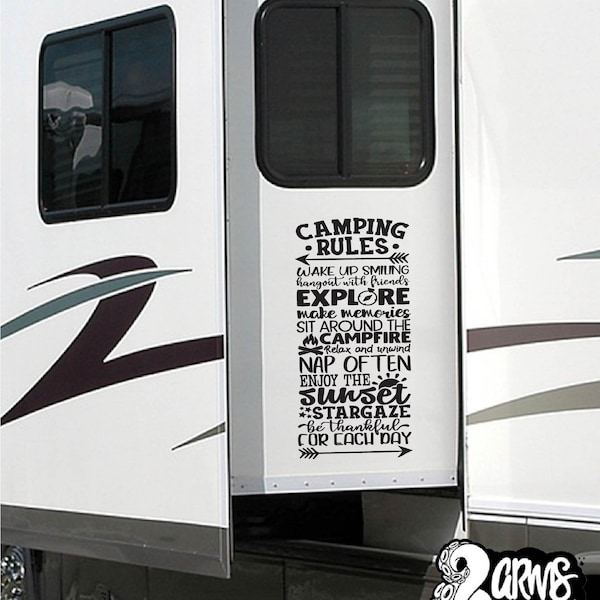 CAMPING
• RULES •
WAKE UP SMILING
hangout with friends
EXPLORE
make memories
SIT AROUND THE
CAMPFIRE
Relax and unwind
NAP OFTEN
ENJOY THE
sunset
STARGAZE
be thankful
FOR EACH DAY
2 arms